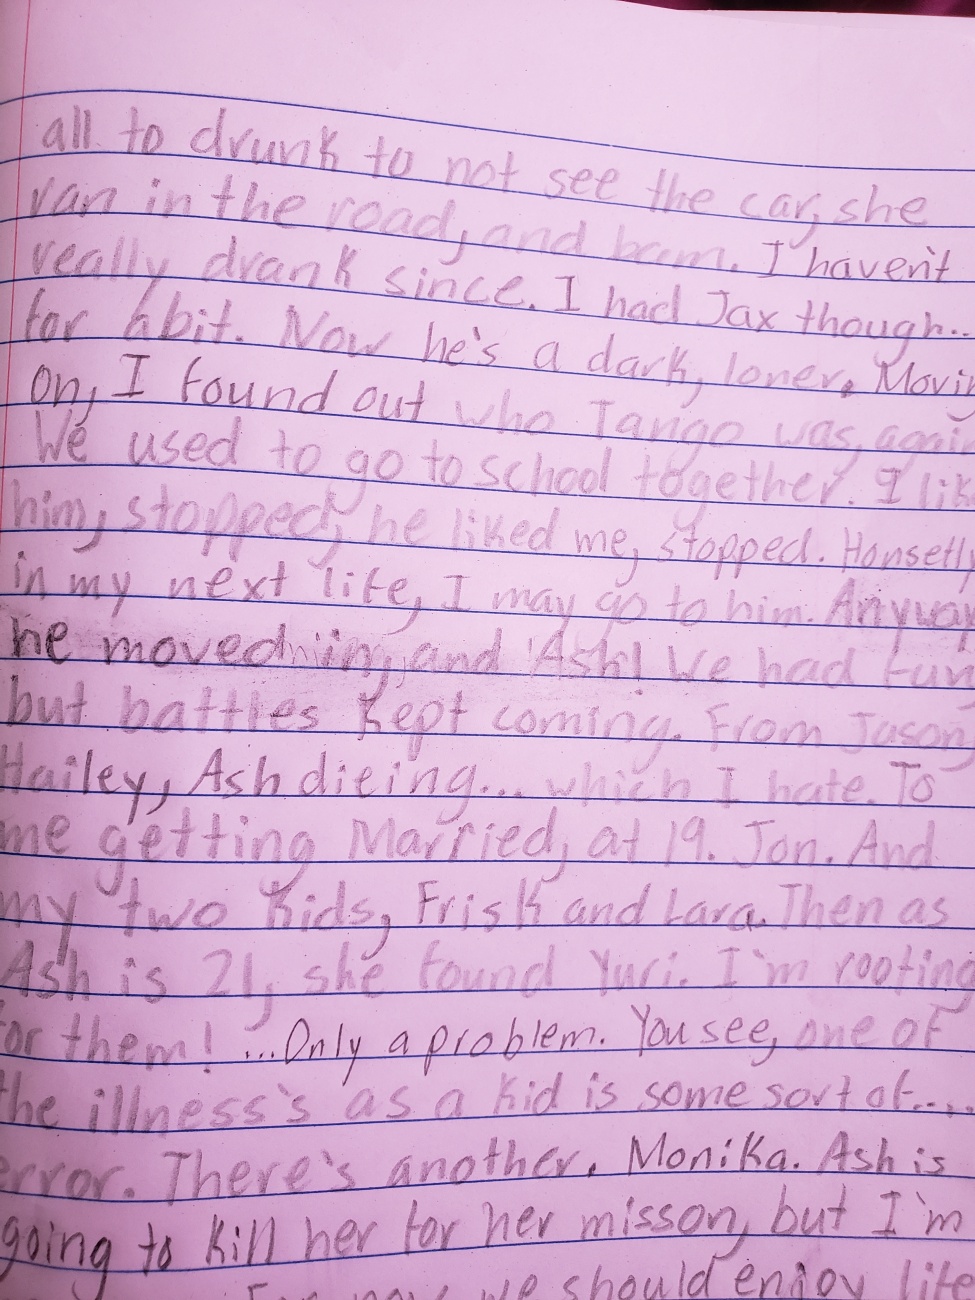 all to drunk to not see the car, she
ran in the road, and bam. I haven't
really drank since. I had Jax though...
for abit. Now he's a dark, loner. Movin
on, I found out who Tango was, again
We used to go to school together. I lik
him, stopped, he liked me, stopped. Honsetly
in my next life, I may go to him. Anyway
he moved in, and 'Ash'! We had fun
but battles kept coming. From Jason,
Hailey, Ash dieing... which I hate. To
me getting Married, at 19. Jon. And
my two kids, Frisk and Lara. Then as
Ash is 21, she found Yuri. I'm rooting
for them! ...Only a problem. You see, one of
the illness's as a kid is some sort of....
error. There's another. Monika. Ash is
going to kill her for her misson, but I'm
For now we should enjoy life